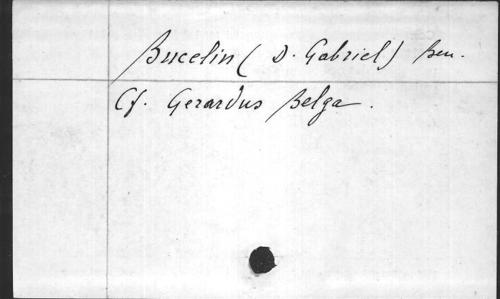 Bucelin (D. Gabriel) Ben.
Cf. Gerardus Belga.